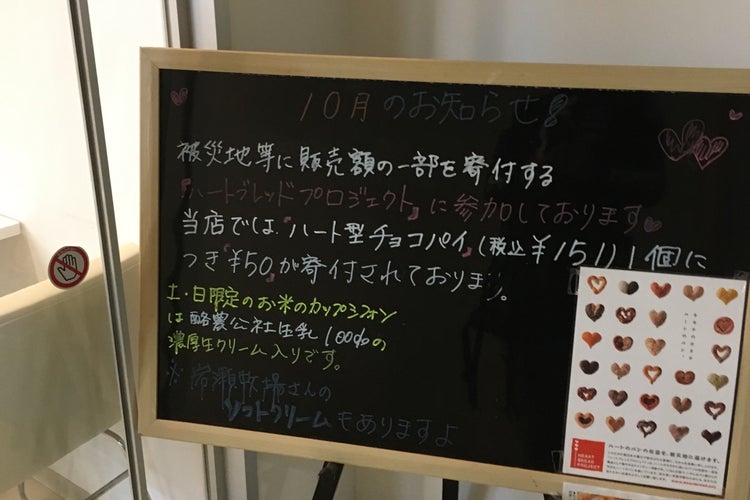 10月のお知らせ!
被災地等に販売額の一部を寄付する
『ハートブレッドプロジェクト』に参加しております
当店では『ハート型チョコパイ』(税込¥151)1個に
つき『¥50』が寄付されております。
土・日限定のお米のカップシフォン
は酪農公社生乳100%の
濃厚生クリーム入りです。
※常瀬牧場さんの
ソフトクリームもありますよ
HEART BREAD PROJECT
ハートのパンの収益を、被災地に届けます。